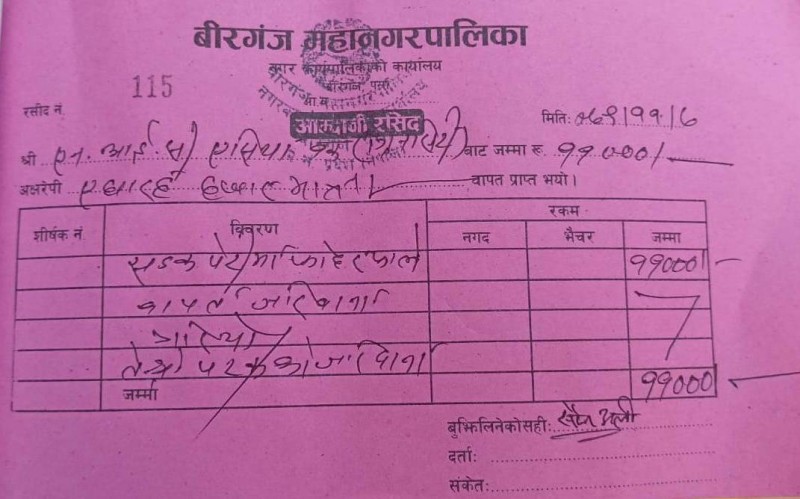 बीरगंज महानगरपालिका
नगर कार्यपालिकाको कार्यालय
बीरगंज, पर्सा
115
रसीद नं.
आम्दानी रसिद
मिति: ०७९।११।७
श्री एन. आई. सी एसिया बैंक बाट जम्मा रु. ११०००।-
अक्षरेपी एघार हजार मात्र। वापत प्राप्त भयो।
रकम
शीर्षक नं. विवरण नगद भैचर जम्मा
सडक पेटीमा फोहर फाले ११०००।-
वापत जरिवाना
गरियो
तेस्रो पटकको जरिवाना
जम्मा ११०००
बुझिलिनेको सही:
दर्ता:
संकेत: